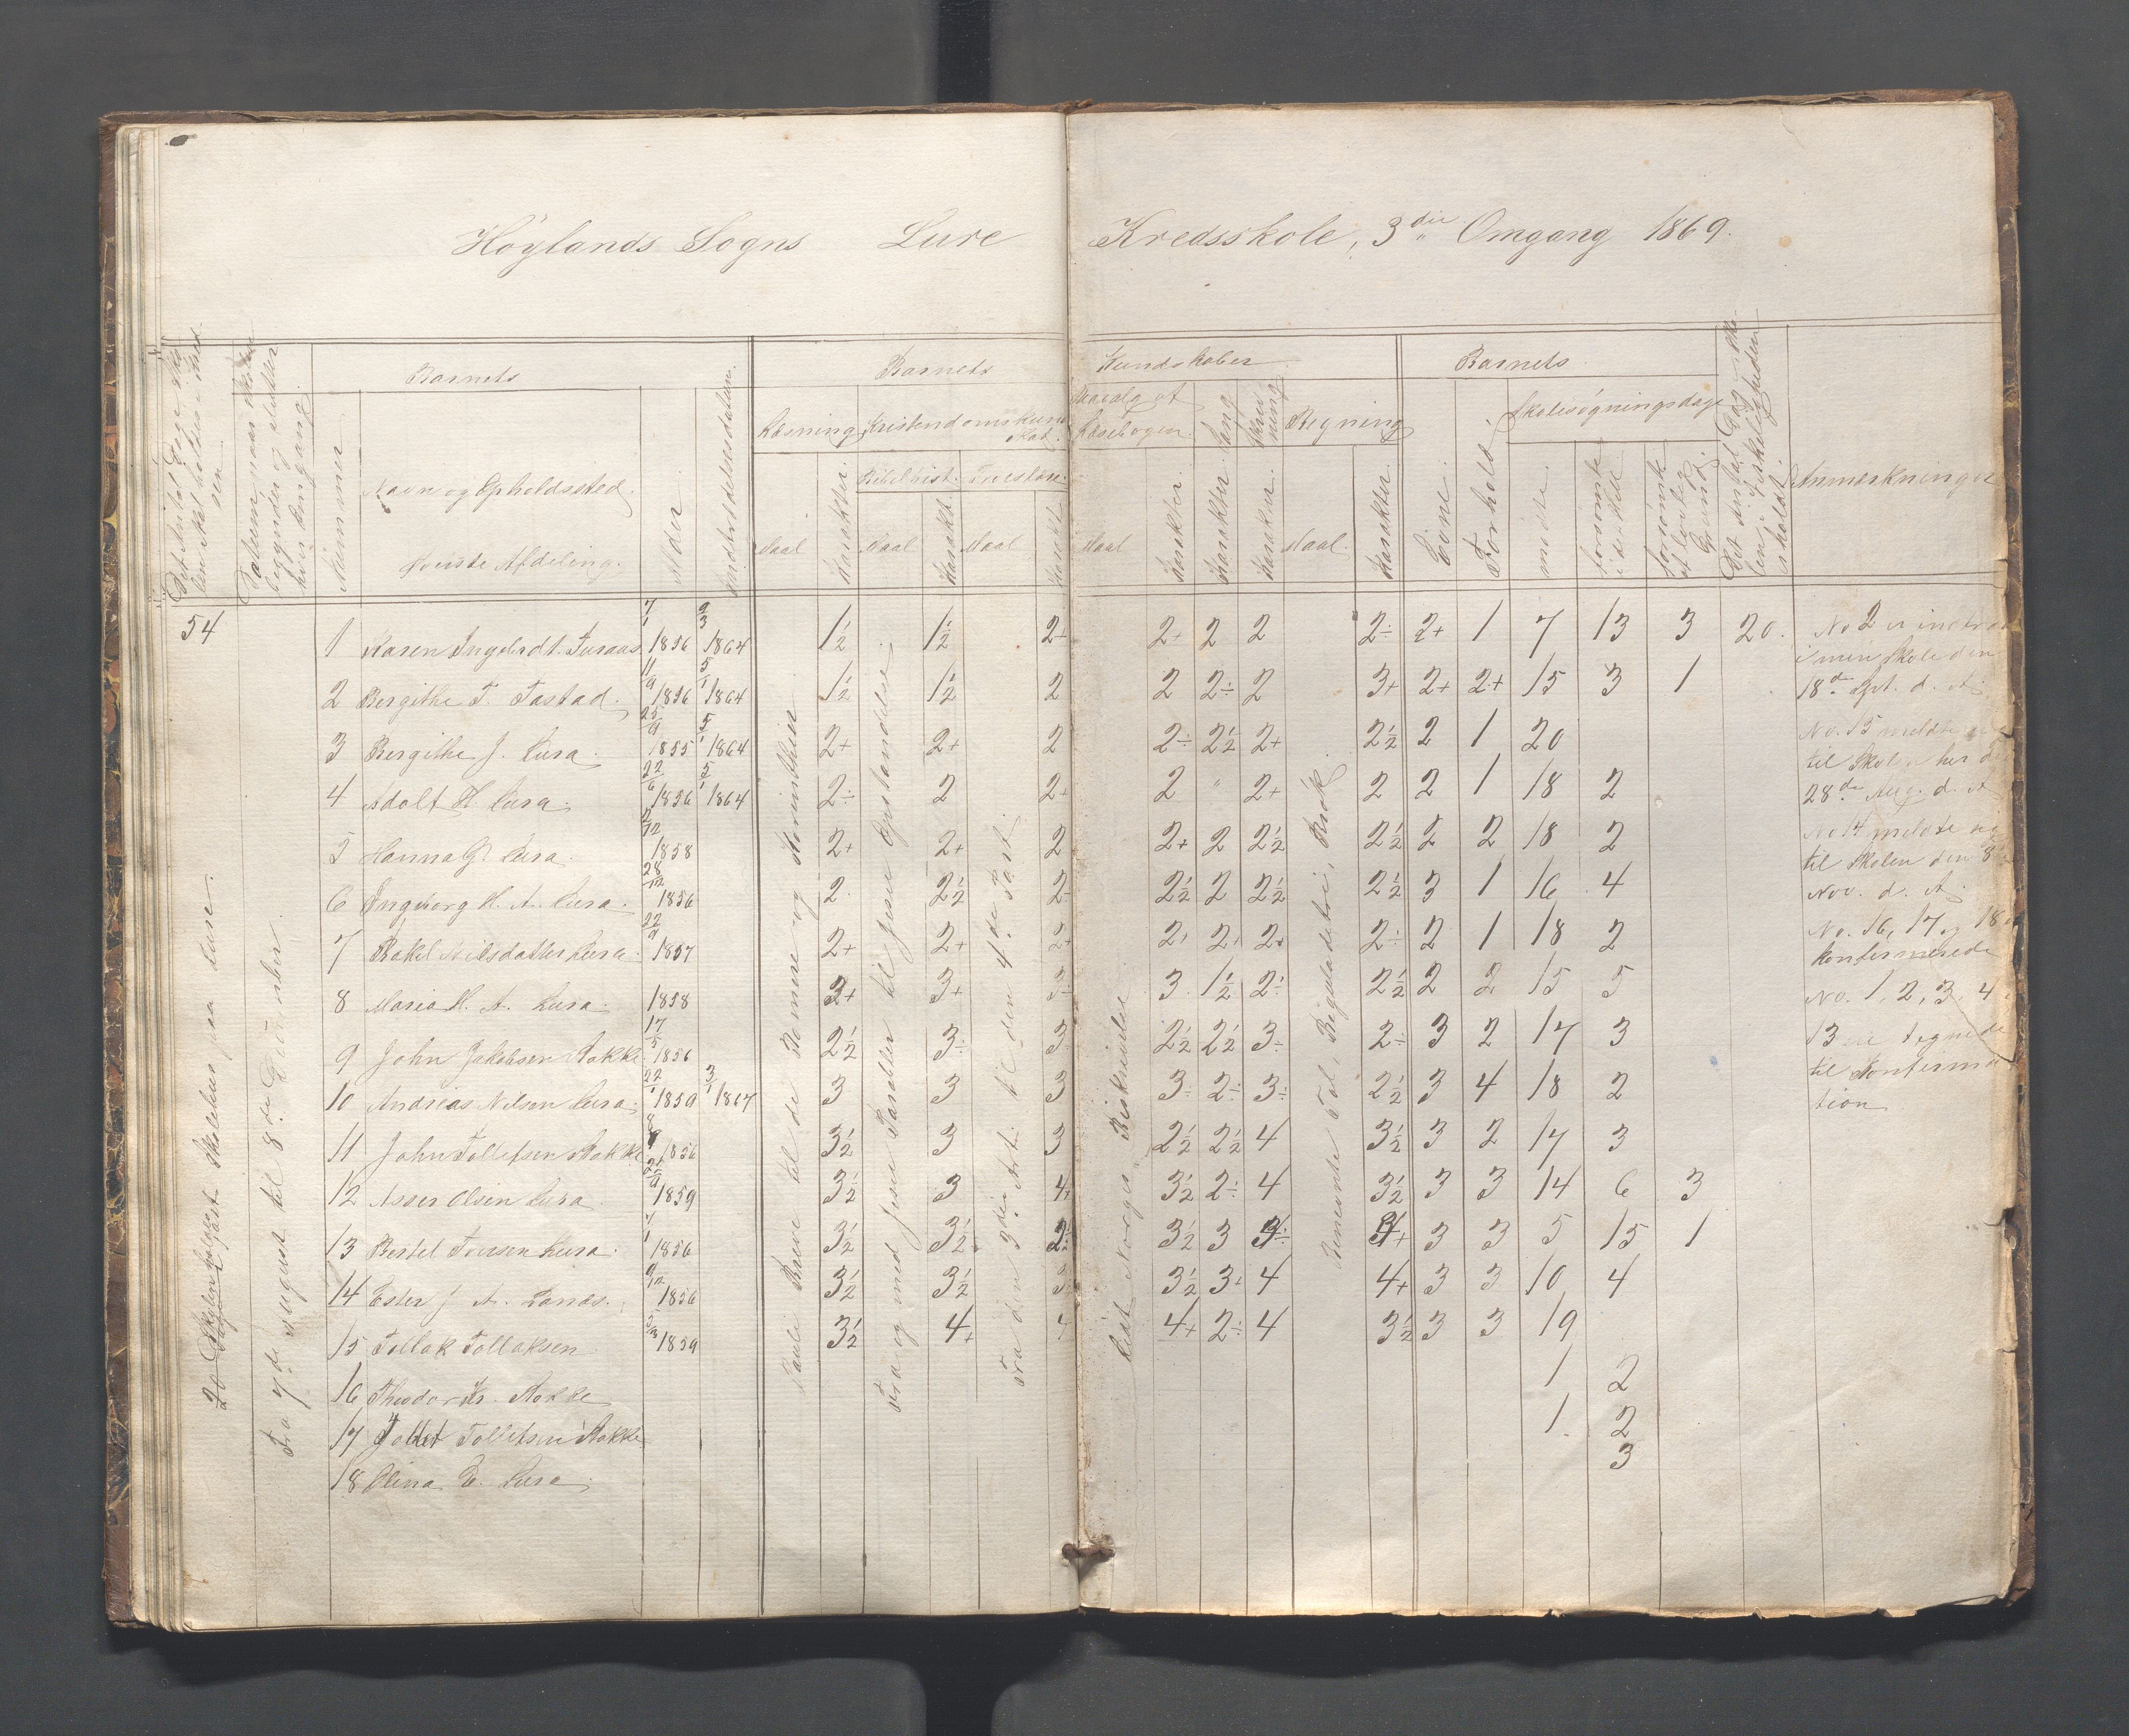 Höylands Sogns Lure Kredsskole, 3die Omgang 1869.
Barnets
Barnets Kundskaber
Barnets
Nummer
Navn og Opholdssted.
Øverste Afdeling.
Alder
Indtrædelsesdatum.
Læsning
Kristendomskundskab.
Bibelhist.
Troeslære.
Læsebogen.
Sang
Skrivning
Regning
Skolesøgningsdage
Maal
Karakter.
Maal
Karakt.
Maal
Karakt
Maal
Karakter.
Karakter
Karakter.
Maal.
Karakter
Evne.
Forhold.
mødte.
forsømte
forsømte af lovlig Grund.
Anmærkninger
54
20
Skolehus paa Lure.
Fra 7de August til 8de
1 Karen 7/1 1856 9/3 1864 1½ 1½ 2+ 2+ 2 2 2÷ 2+ 1 7 13 3 20.
2 Bergithe T. Tastad. 11/9 1856 5/1 1864 1½ 1½ 2 2 2÷ 2 3+ 2+ 2+ 15 3 1
3 Bergithe J. Lura. 25/9 1855 5/1 1864 2+ 2+ 2 2÷ 2½ 2+ 2½ 2 1 20
4 Adolf H. Lura. 22/6 1856 5/1 1864 2÷ 2 2+ 2 " 2+ 2 2 1 18 2
5 Hanna G. Lura. 2/12 1858 2+ 2+ 2 2+ 2 2½ 2½ 2 2 18 2
6 Ingeborg H. A. Lura. 28/12 1856 2 2½ 2÷ 2½ 2 2½ 2½ 3 1 16 4
7 Rakel Nilsdatter Lura. 22/9 1857 2+ 2+ 2+ 2+ 2+ 2+ 2÷ 2 1 18 2
8 Maria H. A. Lura. 1858 2+ 3+ 3÷ 3 1½ 2÷ 2½ 2 2 15 5
9 John Jakobsen Stokke. 17/5 1856 2½ 3÷ 3 2½ 2½ 3÷ 2÷ 3 2 17 3
10 Andreas Nilsen Lura. 22/1 1859 3/1 1867 3 3 3 3÷ 2÷ 3÷ 2½ 3 4 18 2
11 John Tollefsen Stokke 1856 3½ 3 3 2½ 2½ 4 3½ 3 2 17 3
12 Asser Olsen Lura. 1859 3½ 3 4+ 3½ 2÷ 4 3½ 3 3 14 6 3
13 Bertel Tonsen Lura. 1856 3½ 3½ 3½ 3 4+ 3 3 5 15 1
14 Ester J. A. 9/12 1856 3½ 3½ 3÷ 3½ 3+ 4 4+ 3 3 10 4
15 Tollak Tollaksen 1859 3½ 4+ 4 4+ 2÷ 4 3½ 3 3 19
16 Theodor Stokke 1 2
17 Tollefsen Stokke 1 2
18 Olina E. Lura. 3
Pauli Breve til de Romere og Korinthier
Fra og med Jesu Parabler til Jesu Opstandelse.
Fra den 3die Art. til den 4de Part.
Læst Norges Beskrivelse
Benævnte Tal, Reguladetri, Brøk.
No 2 er indtraadt
i min Skole den
18de Spt. d. A.
No. 15 meldte sig
til Skolen her d
28de Aug. d. A
No 14 meldte sig
til Skolen den 8
Nov. d. A.
No. 16, 17 og 18
konfirmerede
No. 1, 2, 3, 4,
13 ere tegnede
til Konfirma
tion